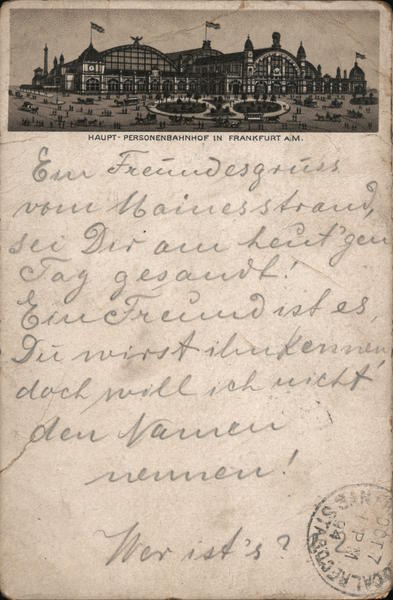 HAUPT-PERSONENBAHNHOF IN FRANKFURT A/M.
Ein Freundesgruss
vom Mainesstrand,
sei Dir am heut'gen
Tag gesandt!
Ein Freund ist es,
Du wirst ihn kennen,
doch will ich nicht
den Namen
nennen!
Wer ist's?
OCT 7
PM
94